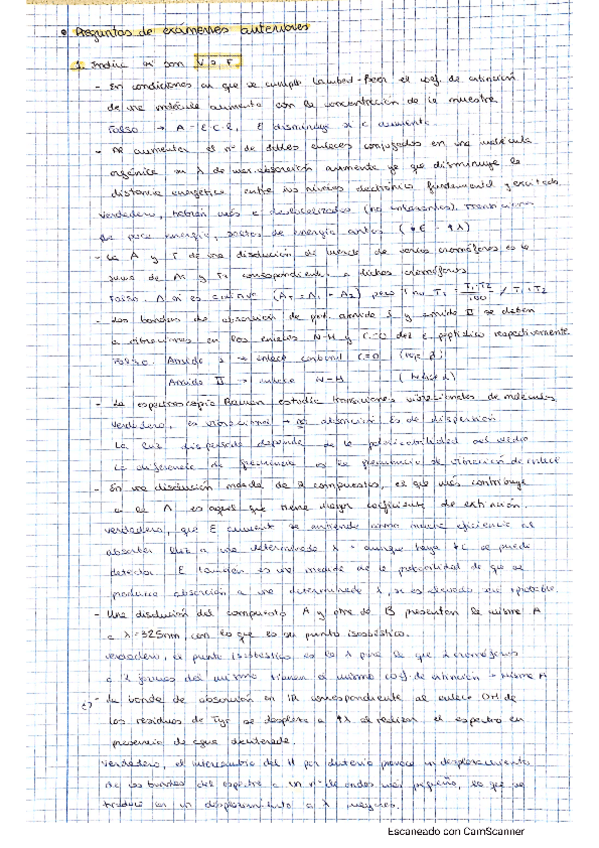 • Preguntas de exámenes anteriores
1. Indica si son V o F.
- En condiciones en que se cumple Lambert-Beer el coef. de extinción
de una molécula aumenta con la concentración de la muestra.
Falso → A = ε·c·l, ε disminuye si c aumenta.
- Al aumentar el nº de dobles enlaces conjugados en una molécula
orgánica su λ de max absorción aumenta ya que disminuye la
distancia energética entre los niveles electrónicos fundamental y excitado
Verdadero, habrán más e⁻ deslocalizados
poca energía, saltos de energía antes (↓E ↑λ)
- La A y T de una disolución de mezcla de varios cromóforos es la
suma de A y T correspondiente a dichos cromóforos
Falso. A sí es (A = A₁ + A₂) pero T no
- Las bandas de absorción de amida I y amida II se deben
a vibraciones en los enlaces N-H y C=O del e. peptídico respectivamente.
Falso. Amida I → enlace carbonil C=O
Amida II → enlace N-H
- La espectroscopía Raman estudia transiciones vibracionales de moléculas
Verdadero, es vibracional → no absorción es de dispersión
La luz dispersada depende de la polarizabilidad del medio
La diferencia de frecuencia es la frecuencia de vibración de enlace
- En una disolución mezcla de 2 compuestos, el que más contribuye
a el A es aquel que tiene mayor coeficiente de extinción.
Verdadero, que ε aumente se entiende como mucha eficiencia al
absorber luz a una determinada λ - aunque haya ↓c se puede
detectar. ε también es una medida de la probabilidad de que se
produzca absorción a una determinada λ, si es elevado será probable.
- Una disolución del compuesto A y otra de B presentan la misma A
a λ = 325nm, con lo que es su punto isosbéstico.
Verdadero, el punto isosbéstico es la λ para la que 2 cromóforos
o 2 formas del mismo tienen el mismo coef. de extinción → misma A
- La banda de absorción en IR correspondiente al enlace OH de
los residuos de Tyr se desplaza a ↑λ al realizar el espectro en
presencia de agua deuterada.
Verdadero, el intercambio del H por deuterio provoca un desplazamiento
de las bandas del espectro a un nº de ondas más pequeño, lo que se
traduce en un desplazamiento a λ mayores.
Escaneado con CamScanner